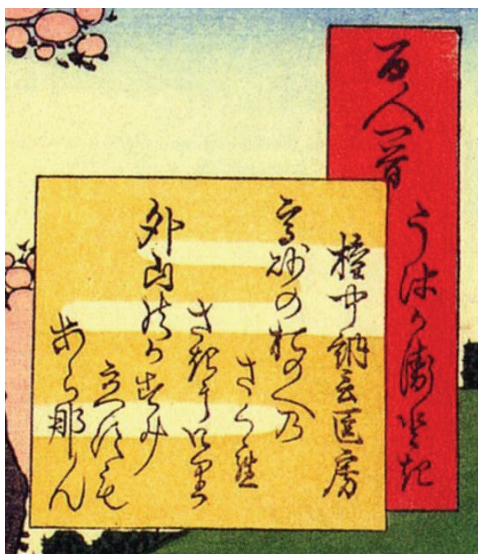 百人一首 うはか衛と起
権中納言匡房
高砂のおのへ乃
さくら
さき尓け里
外山のかすみ
たゝすも
あら那ん